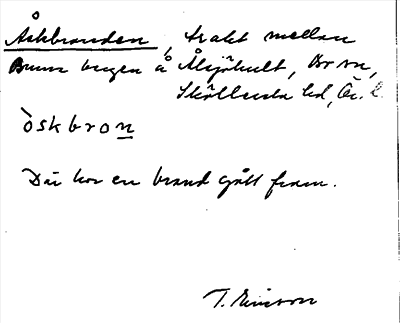 Åskbranden, trakt mellan
Brunn bergen å Ålsjöhult, Bo sn,
Sköllersta hd, Ör. l.
òskbron
Där har en brand gått fram.
T. Ericsson